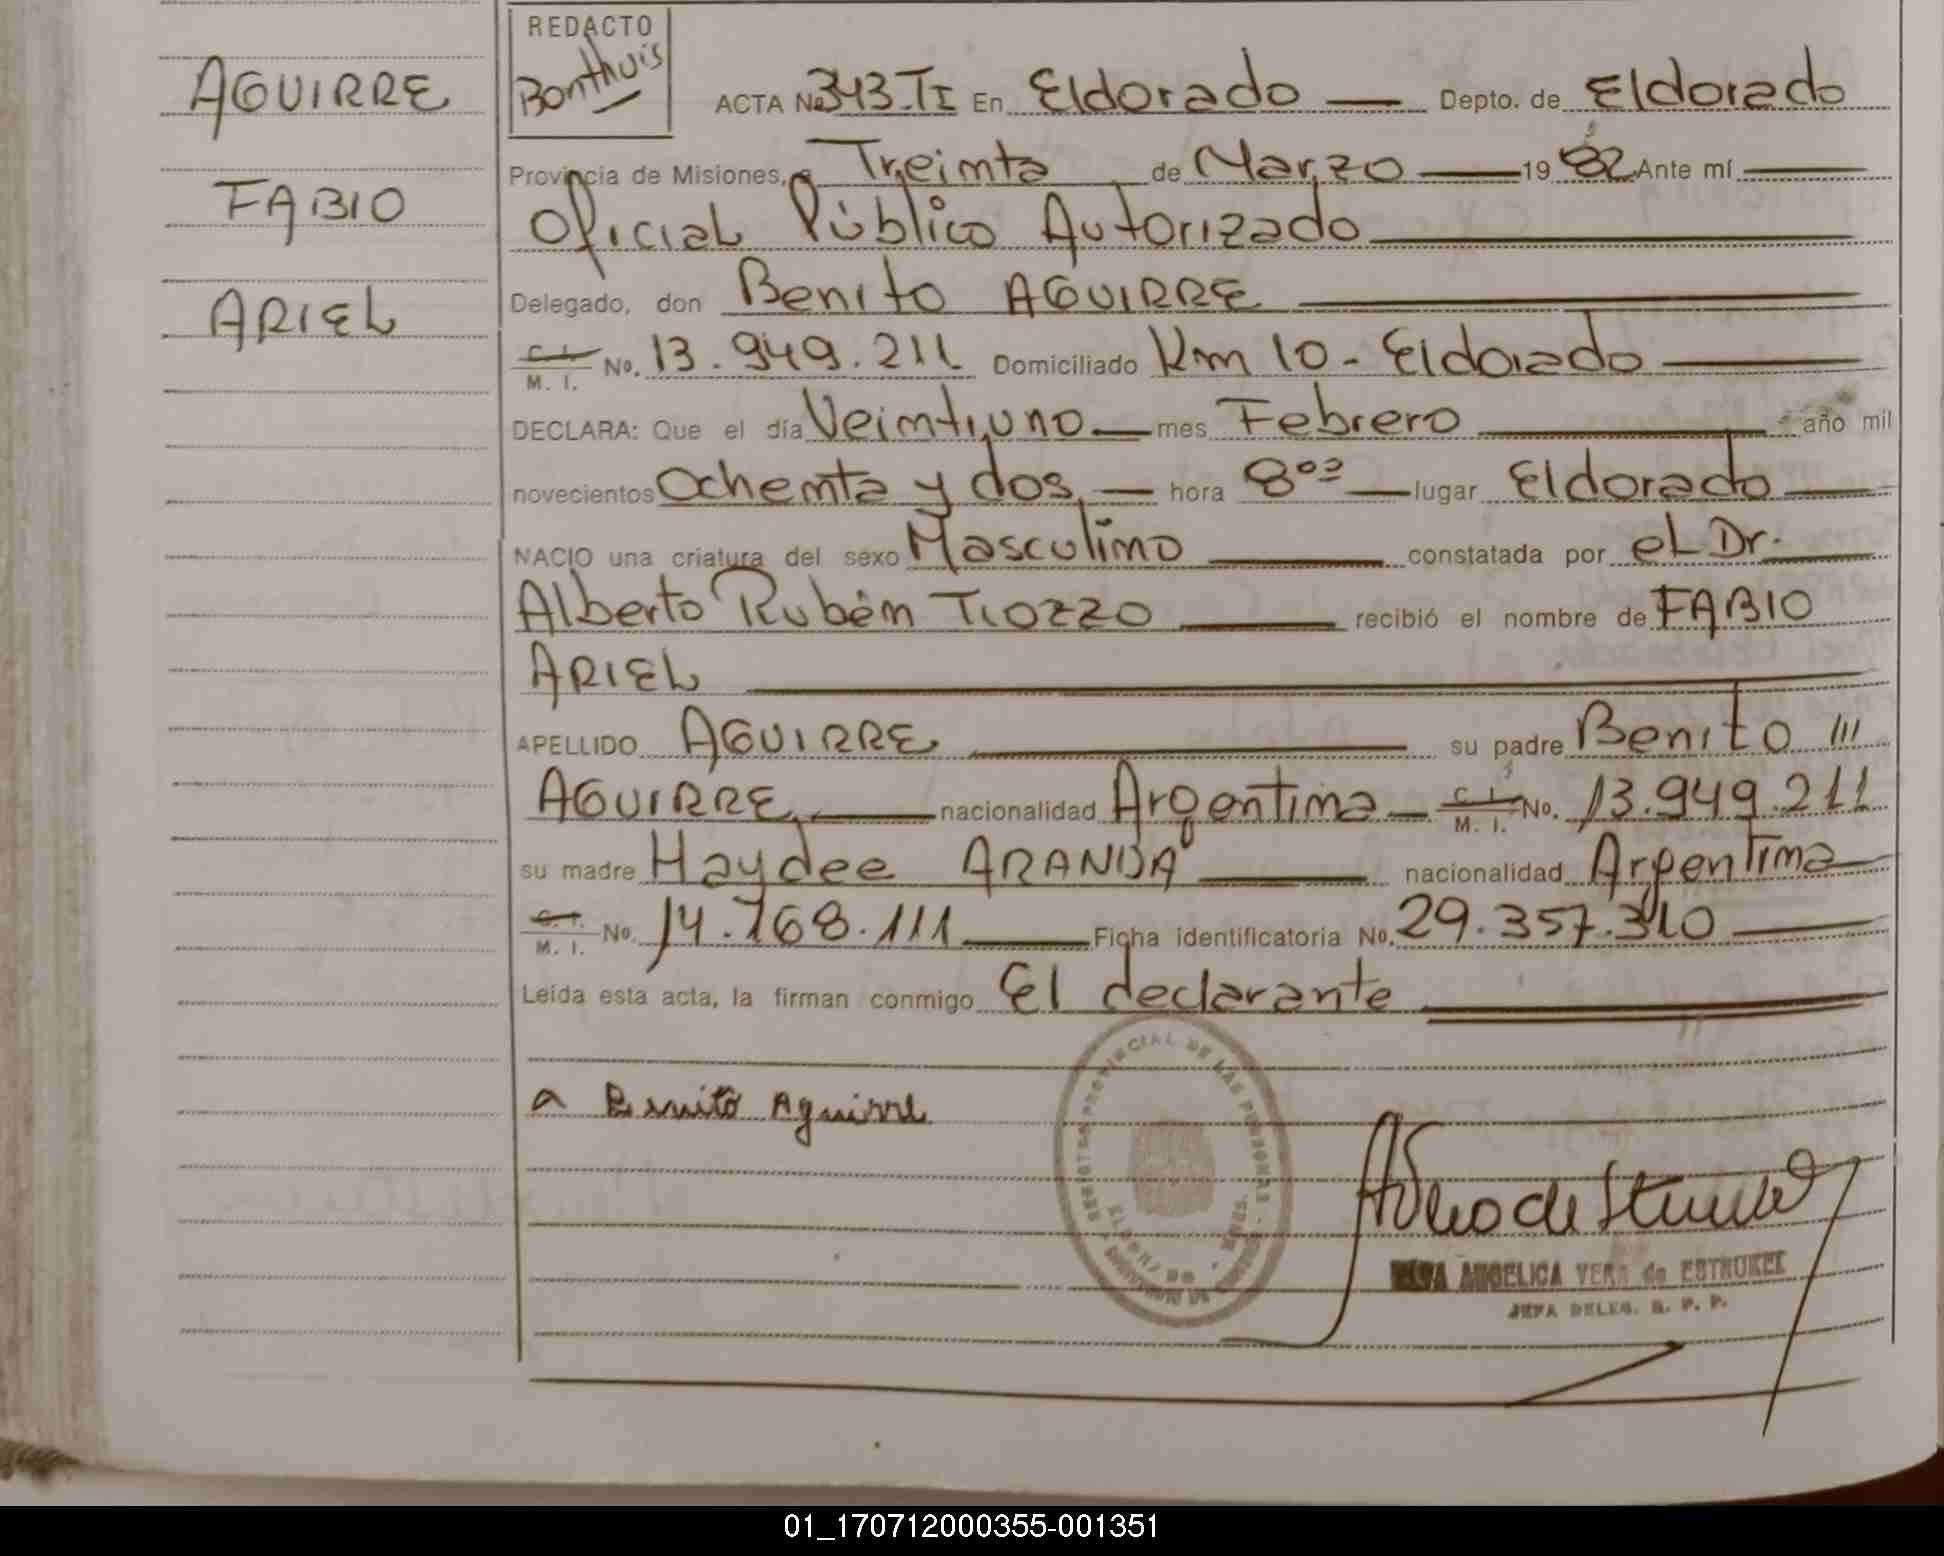 AGUIRRE
FABIO
ARIEL
REDACTO
Bonthuis
ACTA No 343.TI En Eldorado Depto. de Eldorado
Provincia de Misiones, a Treinta de Marzo 19 82 Ante mí
Oficial Público Autorizado
Delegado, don Benito AGUIRRE
C. I. M. I. No. 13.949.211 Domiciliado Km 10 - Eldorado
DECLARA: Que el día Veintiuno mes Febrero año mil
novecientos Ochenta y dos, hora 8oo lugar Eldorado
NACIO una criatura del sexo Masculino constatada por el Dr.
Alberto Rubén TIOZZO recibió el nombre de FABIO
ARIEL
APELLIDO AGUIRRE su padre Benito ///
AGUIRRE, nacionalidad Argentina C. I. M. I. No. 13.949.211
su madre Haydee ARANDA nacionalidad Argentina
C. I. M. I. No. 14.768.111 Ficha identificatoria No. 29.357.310
Leída esta acta, la firman conmigo El declarante
a Benito Aguirre
REGISTRO PROVINCIAL DE LAS PERSONAS
ELDORADO
ANGELICA VERA de ESTRUKEL
JEFA DELEG. R. P. P.
01_170712000355-001351